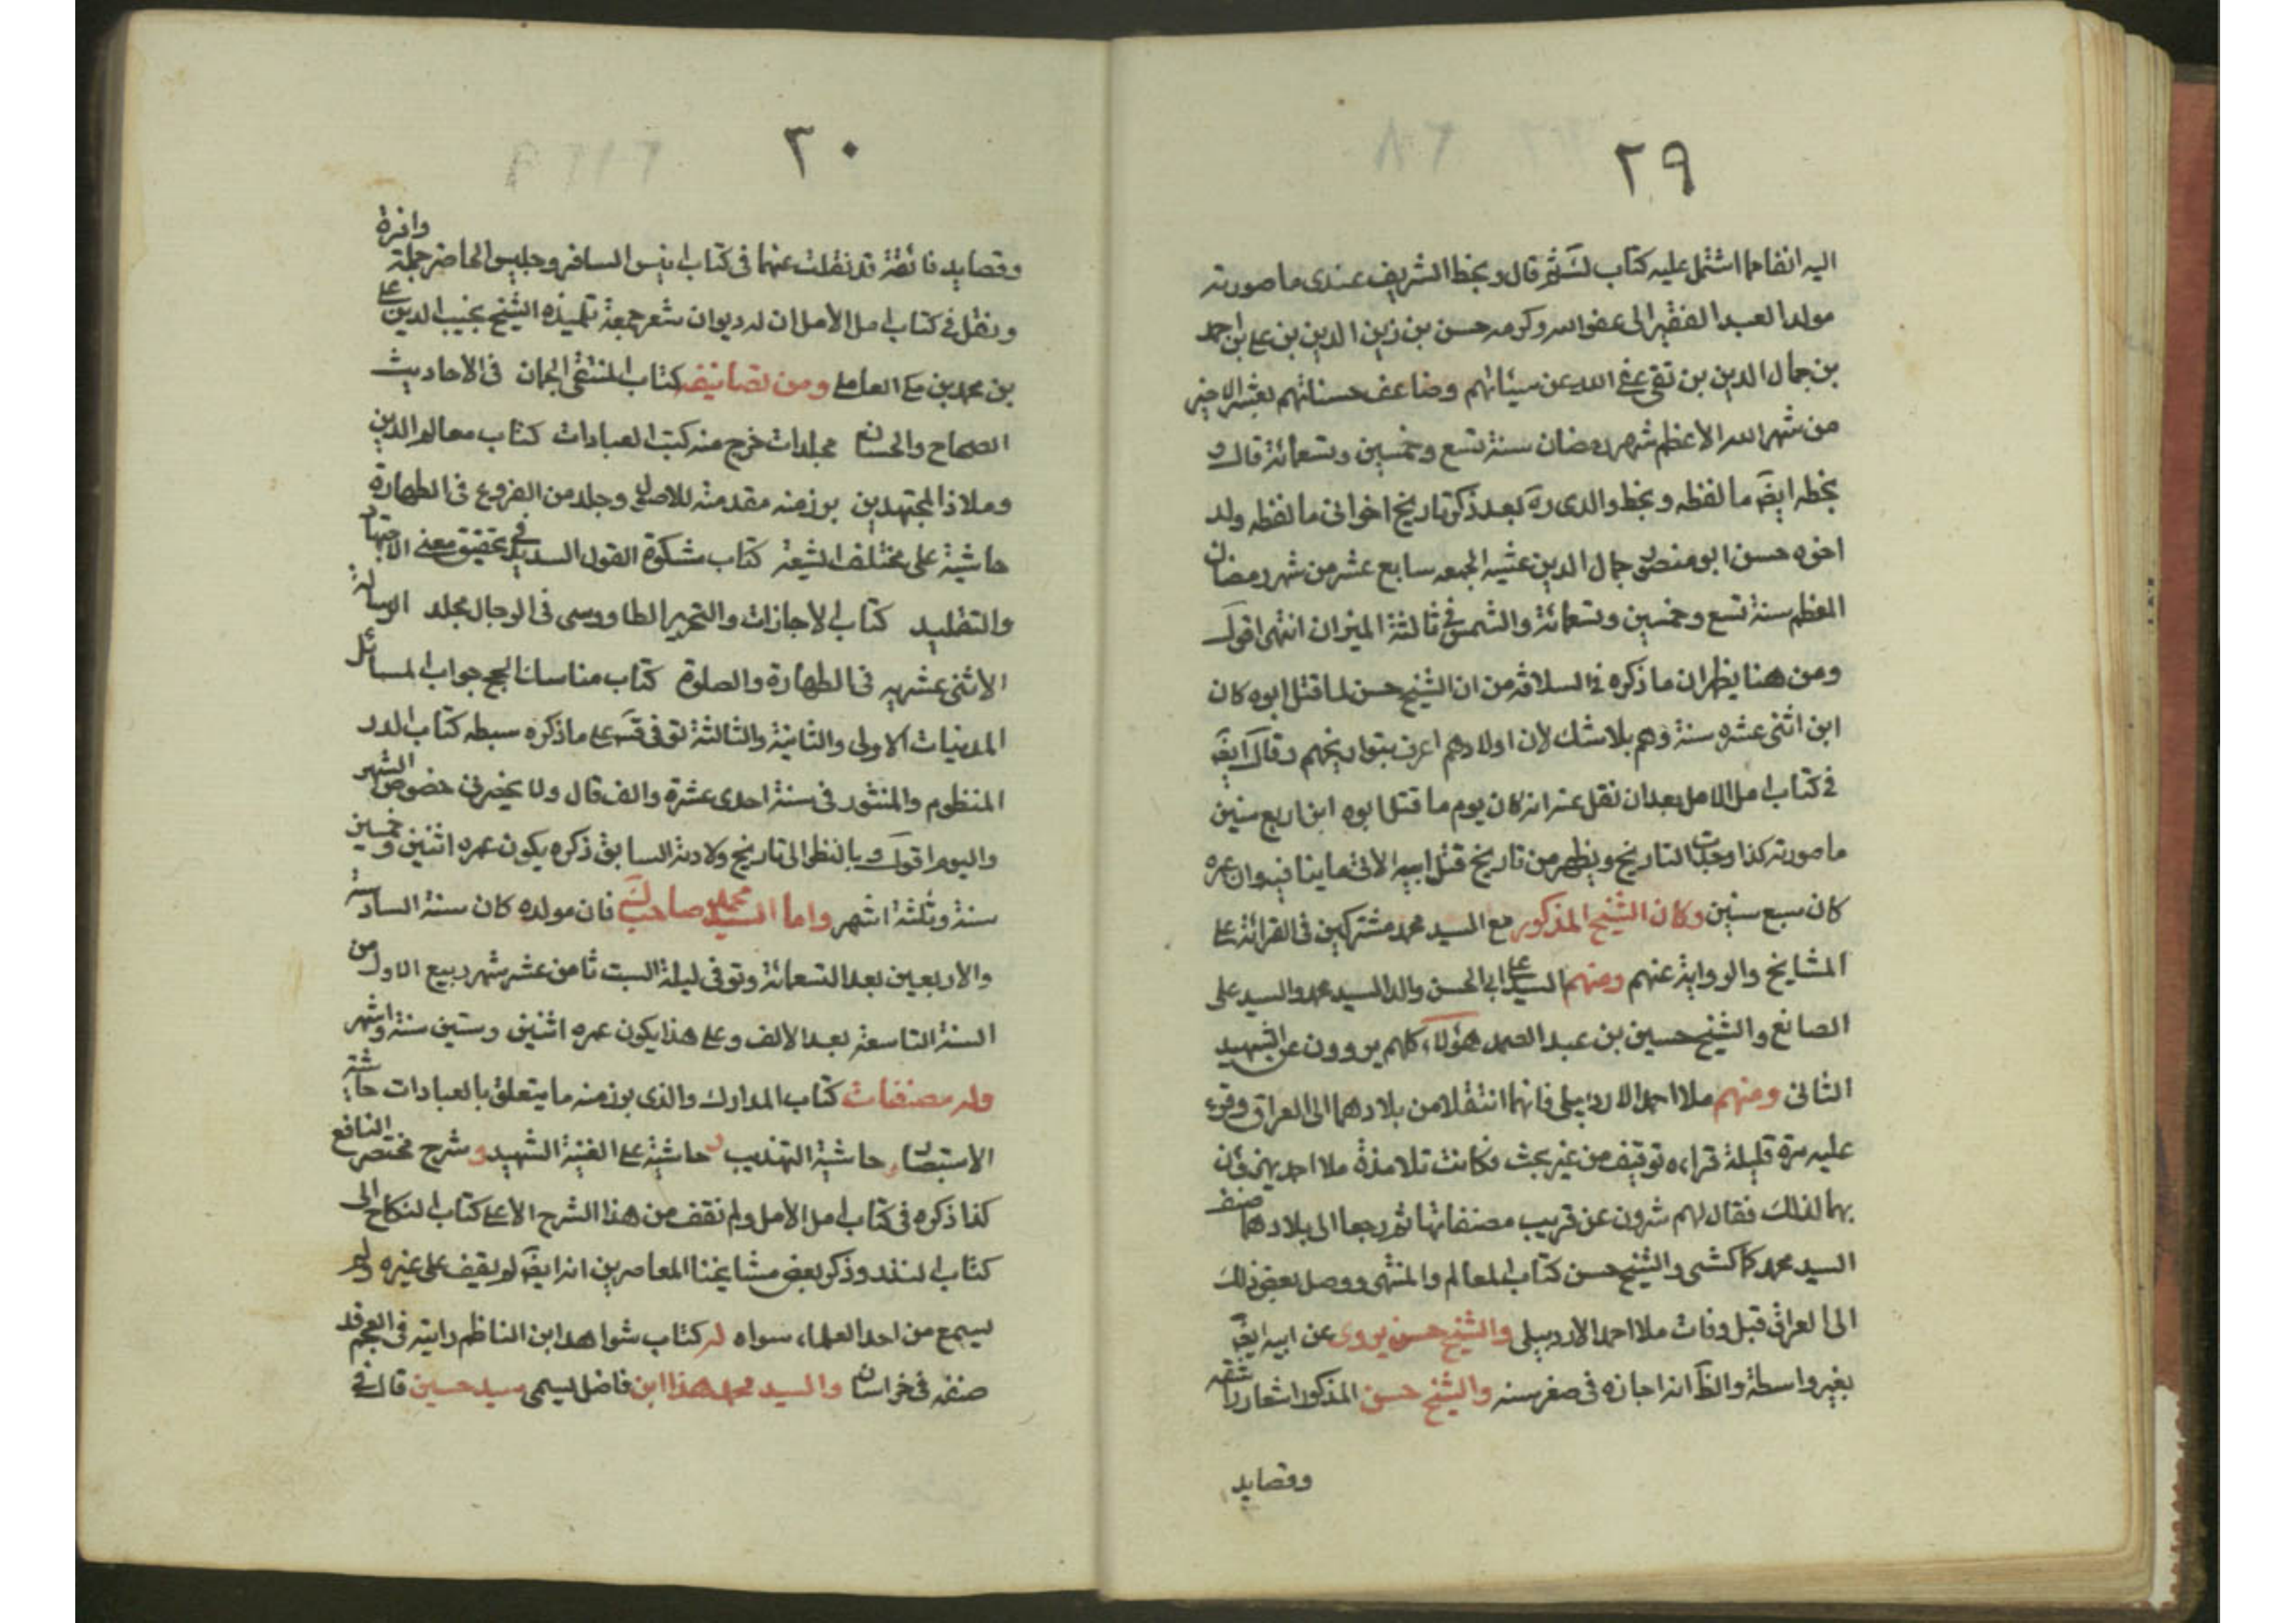 ٢٩
اليه انفا مما اشتمل عليه كتاب ثم قال وبخط الشريف عندى ما صورته
مولد العبد الفقير الى عفو الله وكرمه حسن بن زين الدين بن على بن احمد
بن جمال الدين بن تقى عفى الله عن سيئاتهم وضاعف حسناتهم بعشر الاخير
من شهر الله الأعظم شهر رمضان سنة تسع وخمسين وتسعمائة قال و
بخطه ايضَ ما لفظه وبخط والدى ره بعد ذكر تاريخ اخوانى ما لفظه ولد
اخوه حسن ابو منصور جمال الدين عشية الجمعه سابع عشر من شهر رمضان
المعظم سنة تسع وخمسين وتسعمائة والشمس فى ثالثة الميزان انتهى اقول
ومن هنا يظهر ان ما ذكره فى السلافة من ان الشيخ حسن لما قتل ابوه كان
ابن اثنى عشره سنة وهم بلا شك لأن اولادهم اعرف بتواريخهم وقال ايضَ
فى كتاب امل الامل بعد ان نقل عنه انه كان يوم ما قتل ابوه ابن اربع سنين
ما صورته كذا وجدت التاريخ ويظهر من تاريخ قتل ابيه الاتى ما ينافيه وان عمره
كان سبع سنين وكان الشيخ المذكور مع السيد محمد مشتركين فى القرائة على
المشايخ والرواية عنهم ومنهم السيد على ابى الحسن والد السيد محمد والسيد على
الصانغ والشيخ حسين بن عبد الصمد هؤلاء كلهم يروون عن الشهيد
الثانى ومنهم ملا احمد الاردبيلى فانهما انتقلا من بلادهما الى العراق وقرء
عليه مرة قليلة قراءه توقيف من غير بحث فكانت تلامذة ملا احمد
بهما لذلك فقال لهم ترون عن قريب مصنفاتها ثم رجعا الى بلادهما صنف
السيد محمد والشيخ حسن كتاب المعالم والمنتهى ووصل بعض ذلك
الى العراق قبل وفات ملا احمد الاردبيلى والشيخ حسن يروى عن ابيه ايضَ
بغير واسطة والظَ انه اجازه فى صغر سنه والشيخ حسن المذكور اشعار رائقة
وقصايد
٣٠
وقصايد فائقة قد نقلت عنها فى كتاب انيس المسافر وجليس الحاضر جملة وافرة
ونقل فى كتاب امل الأمل ان له ديوان شعر جمعه تلميذه الشيخ نجيب الدين على
بن محمد بن مكى العاملى ومن تصانيفه كتاب المنتقى الجمان فى الاحاديث
الصحاح والحسان مجلدات خرج منه كتب العبادات كتاب معالم الدين
وملاذ المجتهدين برز منه مقدمته للاصول وجلد من الفروع فى الطهارة
حاشية على مختلف الشيعة كتاب مشكوة القول السديد فى تحقيق معنى الاجتهاد
والتقليد كتاب الاجازات والتحرير الطاووسى فى الرجال مجلد الرسالة
الاثنى عشريه فى الطهارة والصلوة كتاب مناسك الحج جواب المسائل
المدنيات الاولى والثانية والثالثة توفى على ما ذكره سبطه كتاب الدر
المنظوم والمنثور فى سنة احدى عشرة والف قال ولا يحضرنى خصوص الشهر
واليوم اقول وبالنظر الى تاريخ ولادته السابق ذكره يكون عمره اثنين وخمسين
سنة وثلثة اشهر واما السيد محمد صاحب فان مولده كان سنة السادسة
والاربعين بعد التسعمائة وتوفى ليلة السبت ثامن عشر شهر ربيع الاول من
السنة التاسعة بعد الالف وعلى هذا يكون عمره اثنين وستين سنة واشهر
وله مصنفات كتاب المدارك والذى برز منه ما يتعلق بالعبادات حاشية
الاستبصار و حاشية التهذيب و حاشية على الفية الشهيد و شرح مختصر النافع
كذا ذكره فى كتاب امل الأمل ولم نقف من هذا الشرح الا على كتاب النكاح الى
كتاب النذر وذكر بعض مشايخنا المعاصرين انه ايضَ لم يقف على غيره ولم
يسمع من احد العلماء سواه له كتاب شواهد ابن الناظم رايته فى العجم قد
صنفه فى خراسان والسيد محمد هذا ابن فاضل يسمى سيد حسين قال فى